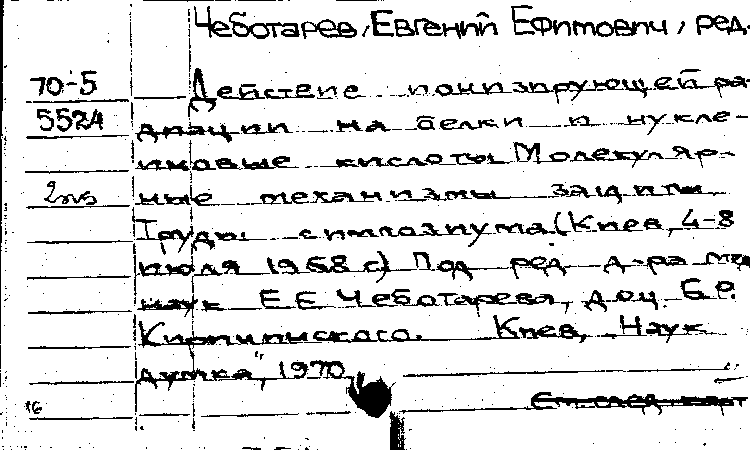 Чеботарев, Евгений Ефимович, ред.
70-5
5524
Действие ионизирующей ра-
диации на белки и нукле-
иновые кислоты Молекуляр-
ные механизмы защиты
Труды симпозиума (Киев, 4-8
июля 1968 г) Под ред д-ра мед
наук Е Е Чеботарева, доц. Б.Р.
Киев, Наук
думка", 1970
16
См. след. карт